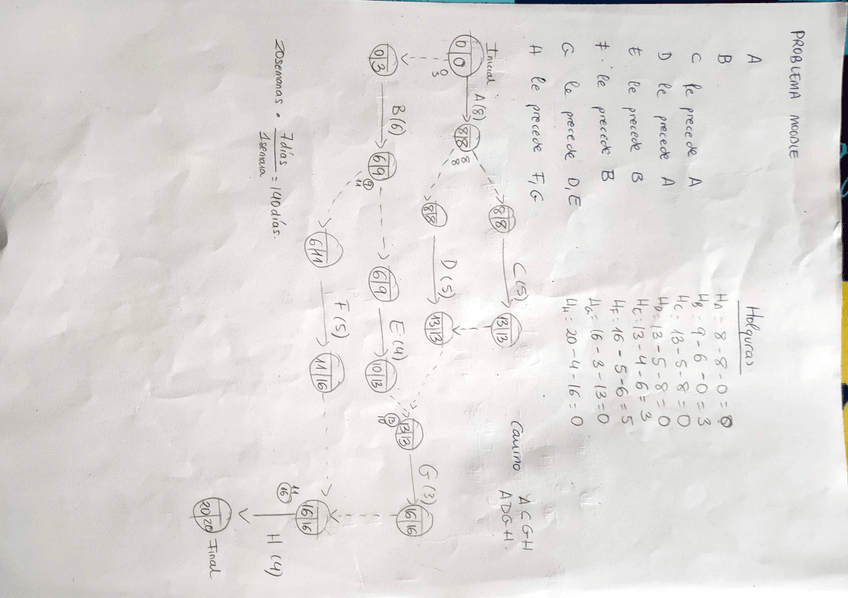 PROBLEMA MOODLE
A
B
C le precede A
D le precede A
E le precede B
F le precede B
G le precede D, E
H le precede F, G
Holguras
HA = 8 - 8 - 0 = 0
HB = 9 - 6 - 0 = 3
HC = 13 - 5 - 8 = 0
HD = 13 - 5 - 8 = 0
HE = 13 - 4 - 6 = 3
HF = 16 - 5 - 6 = 5
HG = 16 - 3 - 13 = 0
HH = 20 - 4 - 16 = 0
Camino ACGH
ADGH
Inicial
0 0
0
3
A (8)
8 8
8
8
8 8
C (5)
13 13
8 8
D (5)
13 13
0 3
B (6)
6 9
9
11
6 9
E (4)
10 13
13
10
13 13
G (3)
16 16
6 11
F (5)
11 16
11
16
16 16
H (4)
20 20
Final
20 semanas · 7 días / 1 semana = 140 días.